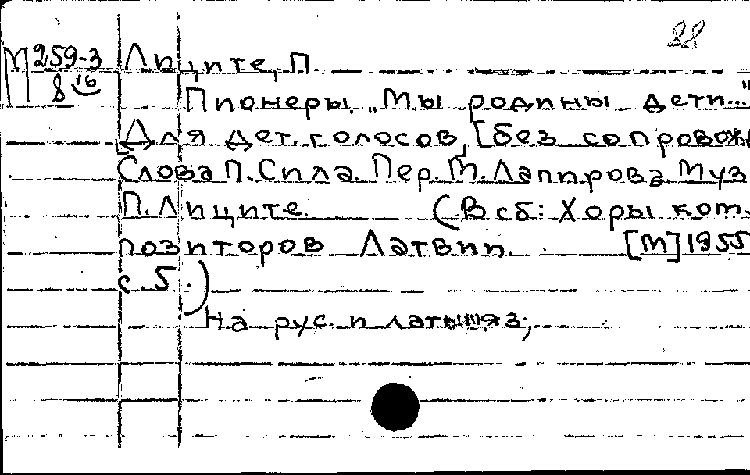 28
М 259-3 Лиците, П.
8 16
Пионеры. „Мы родины дети..."
Для дет. голосов, [без сопровож
Слова П. Сила. Пер. М. Лапирова Муз
П. Лиците. (В сб: Хоры ком-
позиторов Латвии. [М] 1955
с. 5.)
На рус. и латыш яз;